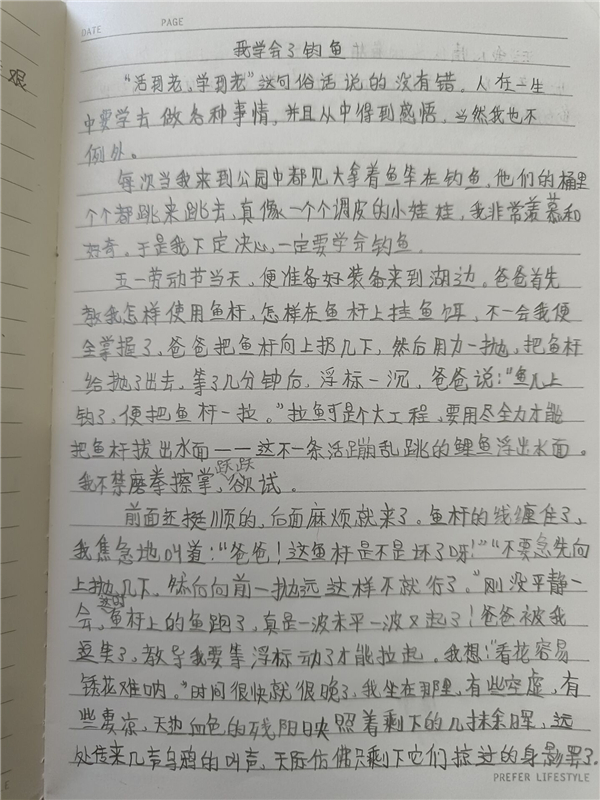 DATE PAGE
艰
我学会了钓鱼
“活到老,学到老”这句俗话说的没有错。人在一生
中要学去做各种事情,并且从中得到感悟,当然我也不
例外。
每次当我来到公园中都见大拿着鱼竿在钓鱼,他们的桶里
个个都跳来跳去,真像一个个调皮的小娃娃,我非常羡慕和
好奇。于是我下定决心,一定要学会钓鱼。
五一劳动节当天,便准备好装备来到湖边。爸爸首先
教我怎样使用鱼杆,怎样在鱼杆上挂鱼饵,不一会我便
全掌握了,爸爸把鱼杆向上扔几下,然后用力一抛,把鱼杆
给抛了出去,等了几分钟后,浮标一沉,爸爸说:“鱼儿上
钩了,便把鱼杆一拉。”拉鱼可是个大工程,要用尽全力才能
把鱼杆拔出水面——这不一条活蹦乱跳的鲤鱼浮出水面。
我不禁磨拳擦掌,跃跃欲试。
前面还挺顺的,后面麻烦就来了。鱼杆的线缠住了,
我焦急地叫道:“爸爸!这鱼杆是不是坏了呀!”“不要急先向
上抛几下,然后向前一抛远这样不就行了。”刚没平静一
会,这时鱼杆上的鱼跑了,真是一波未平一波又起了!爸爸被我
逗笑了,教导我要等浮标动了才能拉起。我想:“看花容易
锈花难呐。”时间很快就很晚了,我坐在那里,有些空虚,有
些凄凉,天边血色的残阳映照着剩下的几抹余晖,远
处传来几声乌鸦的叫声,天际仿佛只剩下它们掠过的身影罢了.
PREFER LIFESTYLE